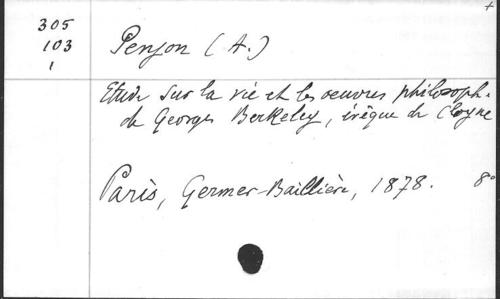 +
305
103
1
Penjon (A.)
Etude sur la vie et les oeuvres philosoph.
de Georges Berkeley, évêque de Cloyne
Paris, Germer-Baillière, 1878. 8°